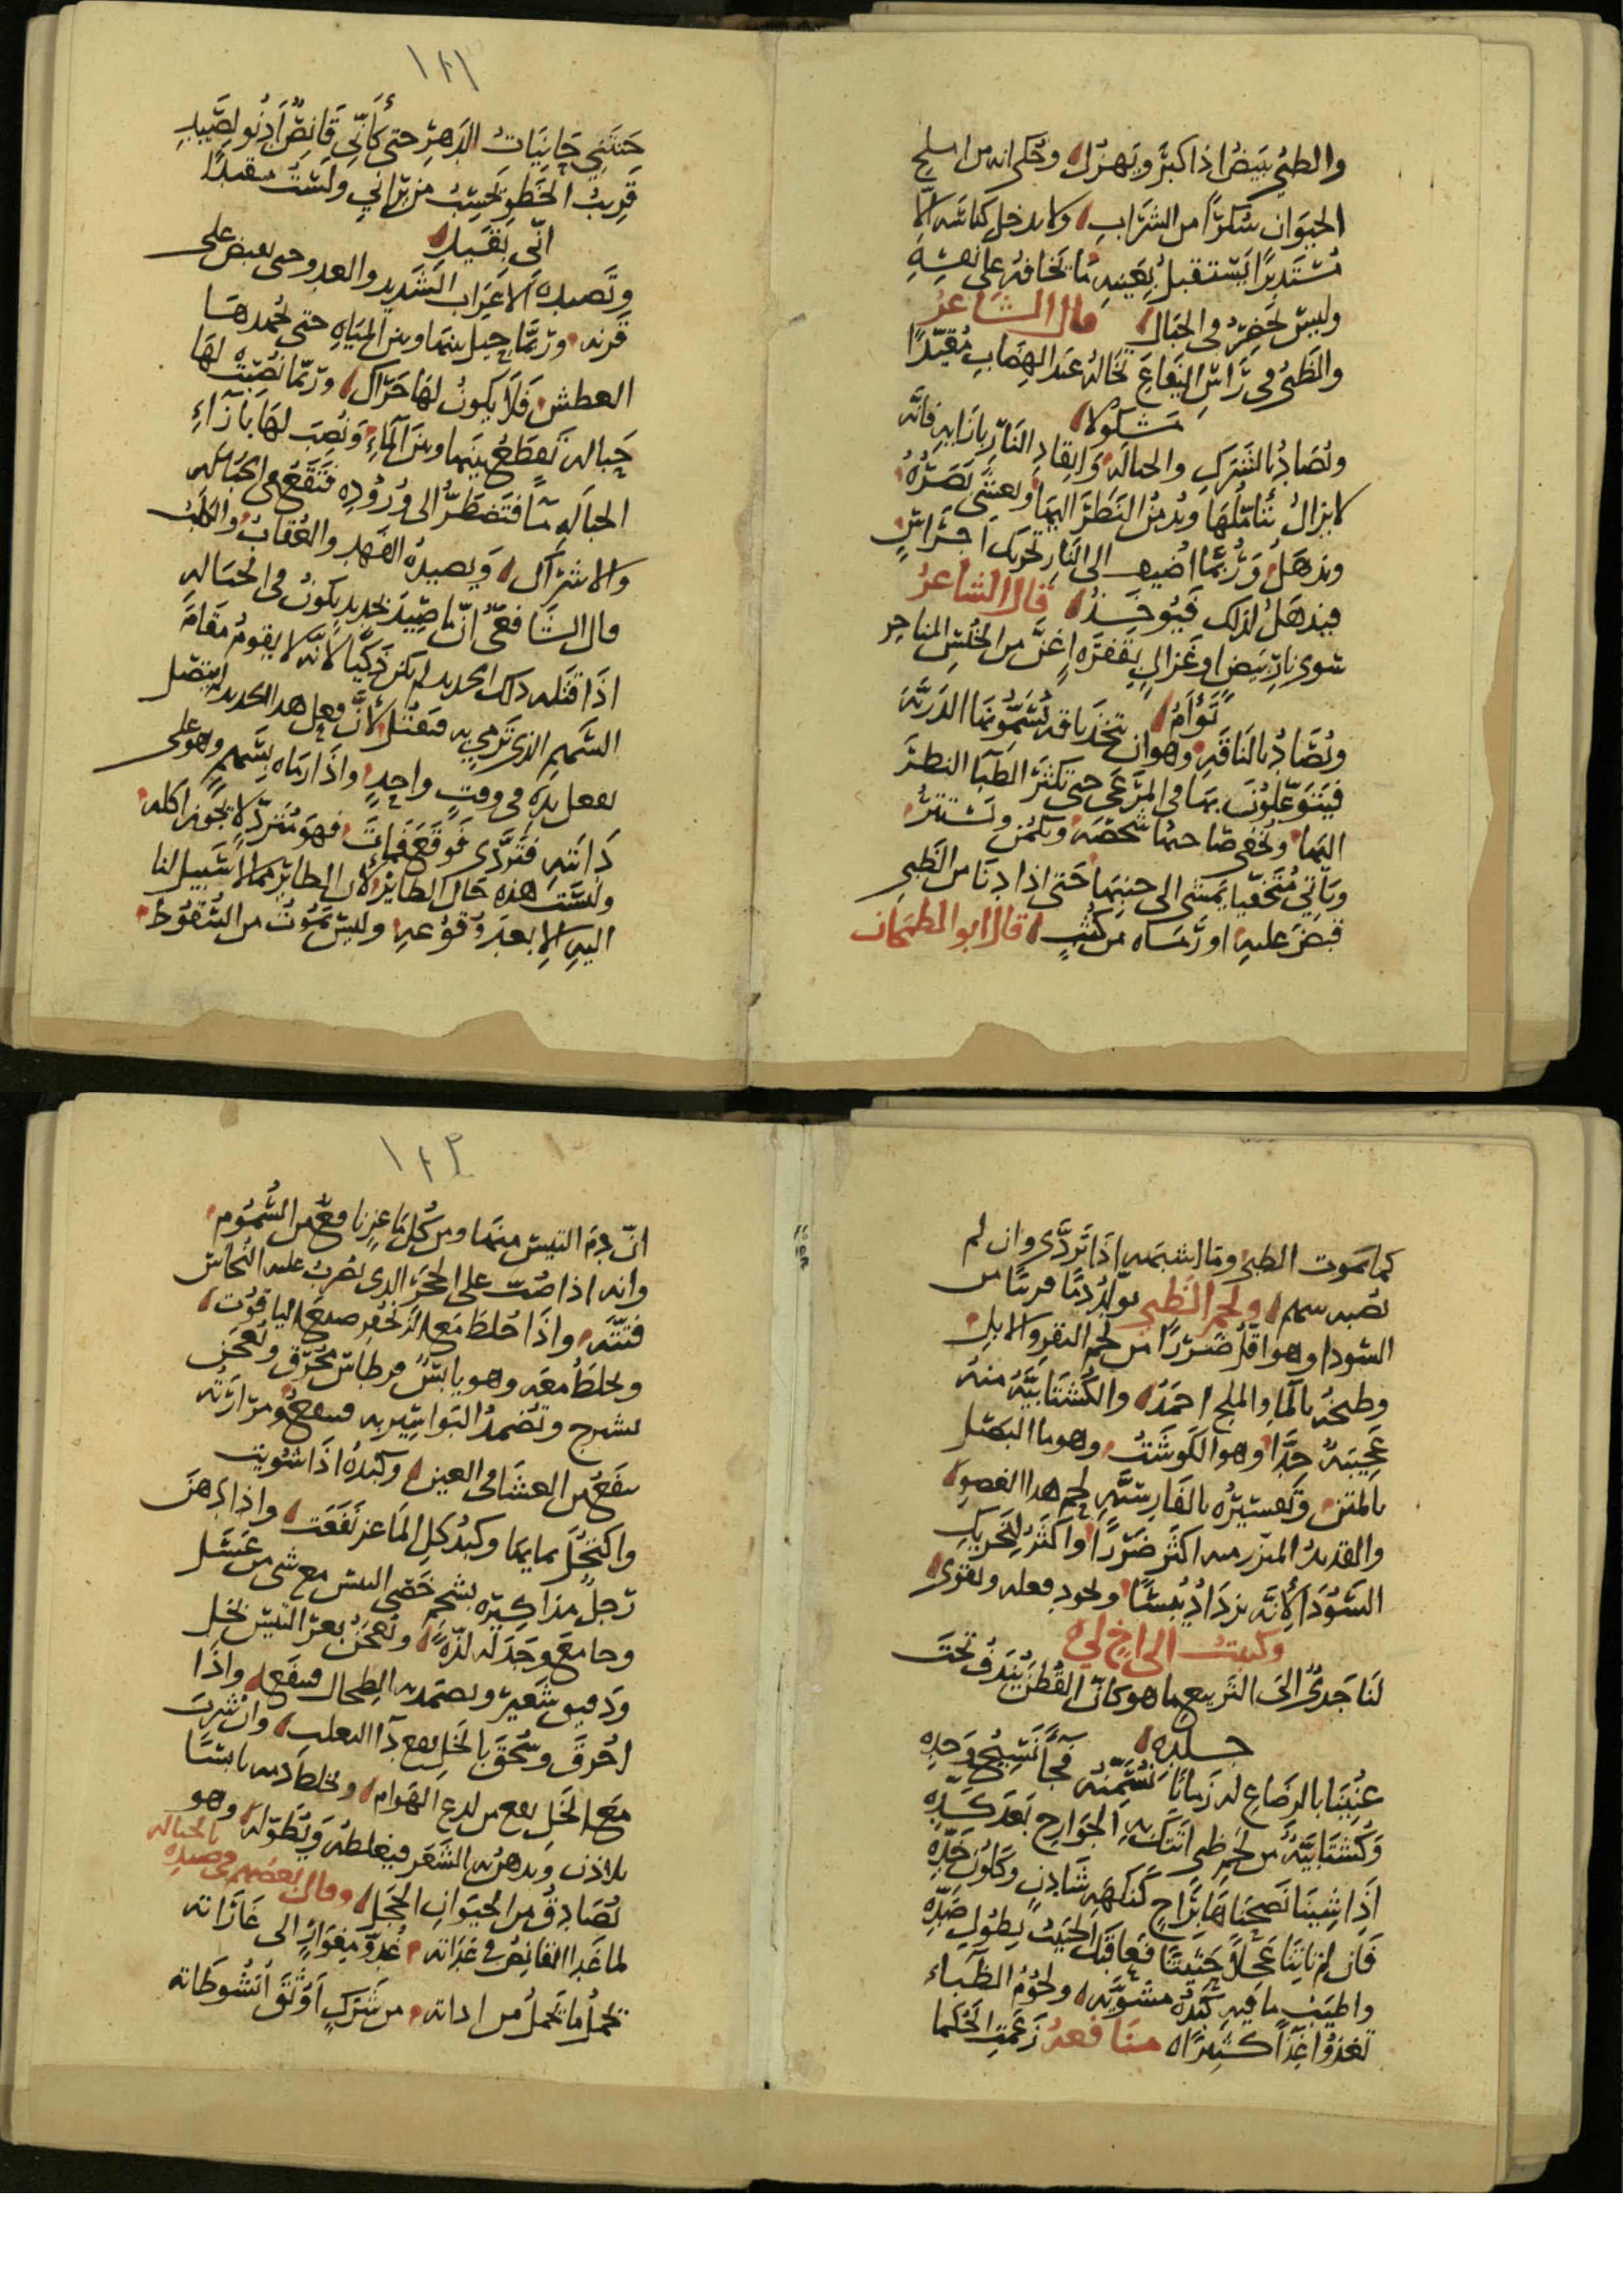 والظبي يبيض اذا كبر ويهزل وحكي انه من املح
الحيوان سكرا من الشراب ولا يدخل كناسه الا
مستديرا يستقبل بعينيه ما يخافه على نفسه
وليس بحضر في الجبال قال الشاعر
والظبي في راس اليفاع تخاله عند الهضاب مقيدا
مشكولا
وتصاد بالشرك والحباله وايقاد النار بازايه فانه
لا يزال يتاملها ويدمن النظر اليها ويعشي بصره
ويذهل وربما اضيف الى النار تحريك اجراس
فيذهل لذلك فيوخذ قال الشاعر
سوى نار بيض او غزال بقفرة اغن من الخنس المناخر
توأم
وتصاد بالناقه وهو ان تتخذ ناقه تسمونها الدريه
فيتوغلون بها في المرعى حتى تكثر الظبا النظر
اليها ويخفي صاحبها شخصه ويكمن ويستتر
وياتي متخفيا يمشي الى جنبها حتى اذا دنا من الظبي
قبض عليه او رماه من كثب قال ابو الطمحان
١٢١
حنتني حانيات الدهر حتى كأني قانص ادنو لصيد
قريب الخطو يحسب من يراني ولست مقيدا
اني بقيد
وتصيده الاعراب الشديد والعدو حتى يقبض على
قرنه وربما حيل بينها وبين المياه حتى يجهدها
العطش فلا يكون لها حراك وربما نصبت لها
حباله تقطع بينها وبين الماء ونصب لها بازاء
الحباله ما فتضطر الى وروده فتقع في الحباله
والاشراك ويصيده الفهد والعقاب والكلب
قال الشافعي ان ما صيد بحديد يكون في الحباله
اذا قتله ذلك الحديد لم يكن ذكيا لانه لا يقوم مقام
السهم الذي ترمي به فتقتل لأن فعل هذا الحديد لم يتصل
بفعل يده في وقت واحد واذا رماه بسهم وهو على
رابيه فتردى فوقع فمات فهو مترد لا يجوز اكله
وليست هذه حال الطاير لان الطاير مما لا سبيل لنا
اليه الا بعد وقوعه وليس يموت من السقوط
كما يموت الظبي وما اشبهه اذا تردى وان لم
يصبه سهم ولحم الظبي يولد دما قريبا من
السودا وهو اقل ضررا من لحم البقر والابل
وطبخه بالما والملح احمد والكشتابيه منه
عجيبه جدا وهو الكوشت وهو ما البصل
بالمتن وتفسيره بالفارسيه لحم هذا العضو
والقديد المبزر منه اكثر ضررا واكثر لتحريك
السودا لأنه يزداد يبسا ويجود فعله ويقوى
وكتبت الى اخ لي
لنا جدي الى التربيع ما هو كأن القطن يندف تحت
جلده
عنينا بالرضاع له زمانا نسمنه فجا نسيج وحده
وكشتابية من لحم ظبي اتتك به الجوارح بعد كده
اذا شينا نصحناها براح كنكهة شادن وكلون خده
فان لم تاتنا عجلا حثيثا فعاقبك الحبيب بطول صده
واطيب ما فيه كبده مشويه ولحوم الظباء
تغذوا غذا كثيرا منافعه زعمت الحكما
١٢٢
ان دم التيس منها ومن كل ماعز نافع من السموم
وانه اذا صب على الحجر الذي يضرب عليه النحاس
فتته واذا خلط مع الزنجفر صبغ الياقوت
ويخلط معه وهو يابس قرطاس محرق ويعجن
بشيرج وتضمد البواسير به فينفع ومرارته
تنفع من العشا في العين وكبده اذا شويت
واكتحل بمايها وكبد كل الماعز نفعت واذا دهن
رجل مذاكيره بشحم خصي التيس مع شي من عسل
وجامع وجد له لذه ويعجن بعر التيس بخل
ودقيق شعير ويضمد به الطحال فينفع واذا
احرق وسحق بالخل نفع دا الثعلب وان شرب
مع الخل نفع من لدغ الهوام ويخلط دمه يابسا
بلاذن ويدهن به الشعر فيغلظه ويطوله وهو
يصادق من الحيوان الحجل وقال بعضهم في صيده بالحباله
لما غدا القانص في غداته غدو مغوار الى غاراته
يحمل ما يحمل من اداته من شرك اوثق انشوطاته